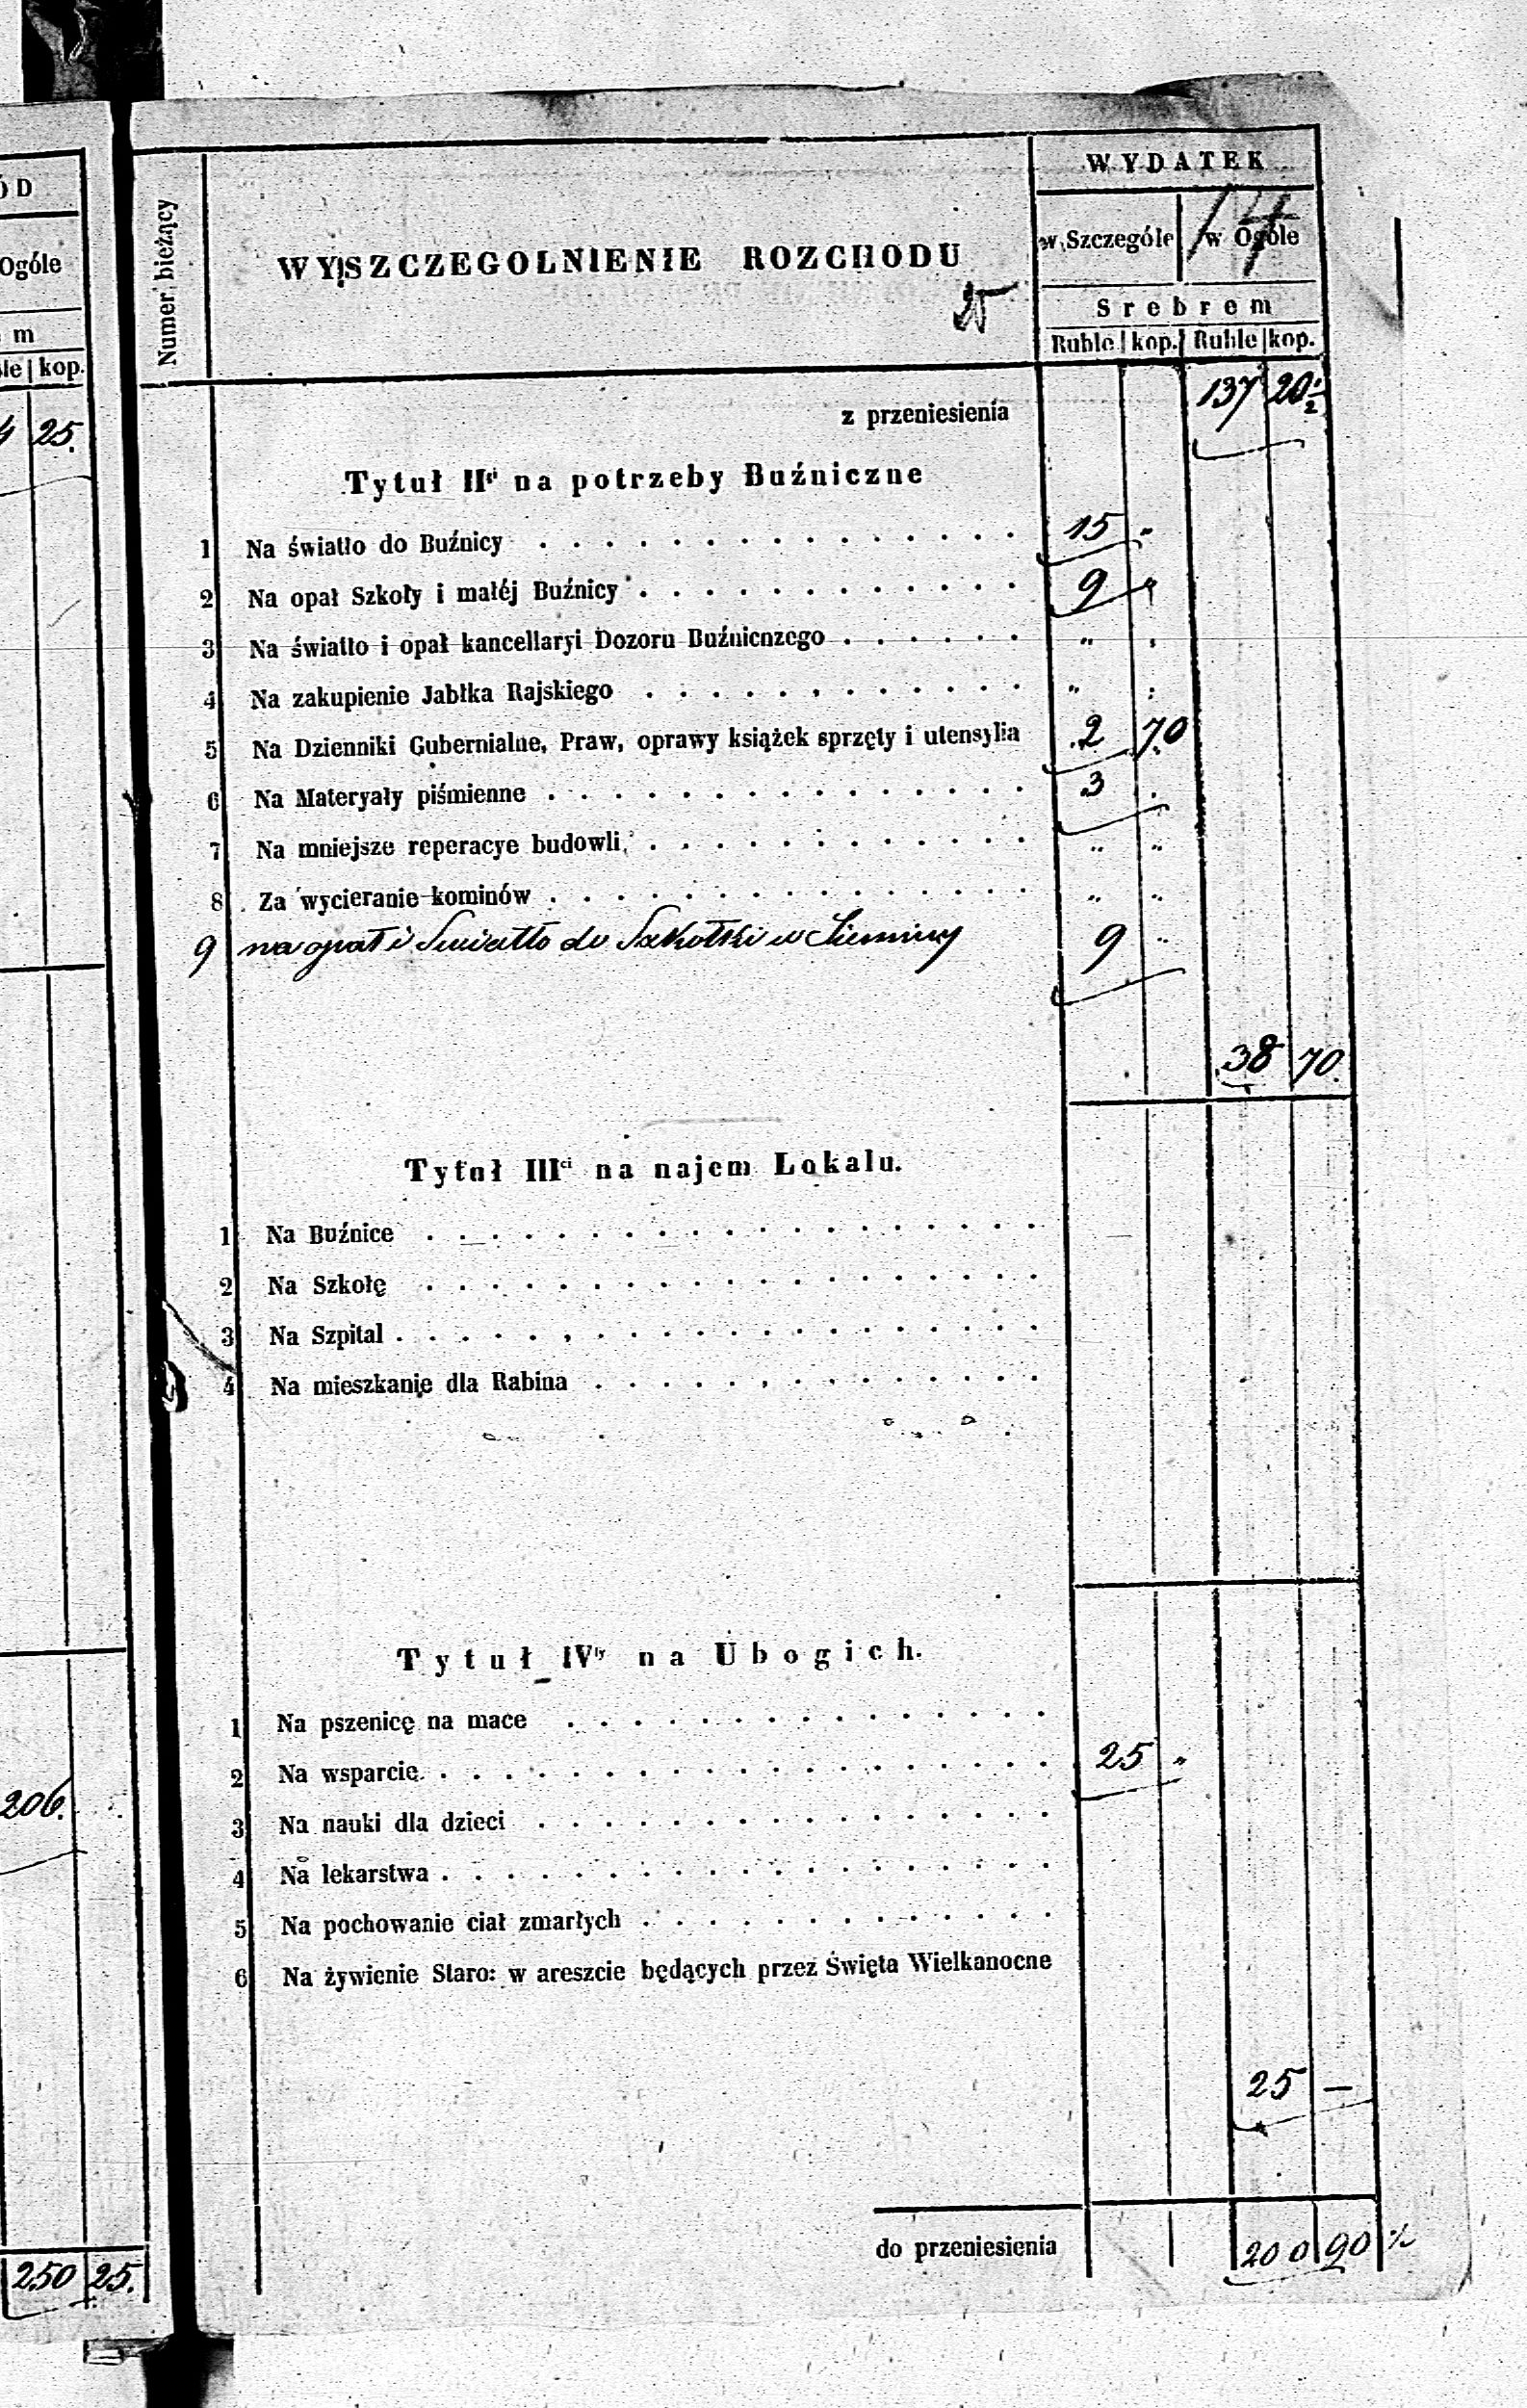 ÓD
Ogóle
m
le kop.
4 25.
206.
250 25.
Numer bieżący
WYSZCZEGOLNIENIE ROZCHODU
25
WYDATEK
w Szczególe w Ogóle
14
Srebrem
Ruble kop. Ruble kop.
z przeniesienia 137 20 1/2
Tytuł IIgi na potrzeby Buźniczne
1 Na światło do Buźnicy 15 "
2 Na opał Szkoły i małéj Buźnicy 9 "
3 Na światło i opał kancellaryi Dozoru Buźnicnzego " "
4 Na zakupienie Jabłka Rajskiego " "
5 Na Dzienniki Gubernialne, Praw, oprawy książek sprzęty i utensylia 2 70
6 Na Materyały piśmienne 3 .
7 Na mniejsze reperacye budowli " "
8 Za wycieranie kominów " "
9 na opał i Swiatło do Szkołki w 9 "
38 70
Tytuł IIIci na najem Lokalu.
1 Na Buźnice
2 Na Szkołę
3 Na Szpital
4 Na mieszkanie dla Rabina
Tytuł IVty na Ubogich.
1 Na pszenicę na mace
2 Na wsparcie 25 "
3 Na nauki dla dzieci
4 Na lekarstwa
5 Na pochowanie ciał zmarłych
6 Na żywienie Staro: w areszcie będących przez Święta Wielkanocne
25 —
do przeniesienia 200 90 1/2